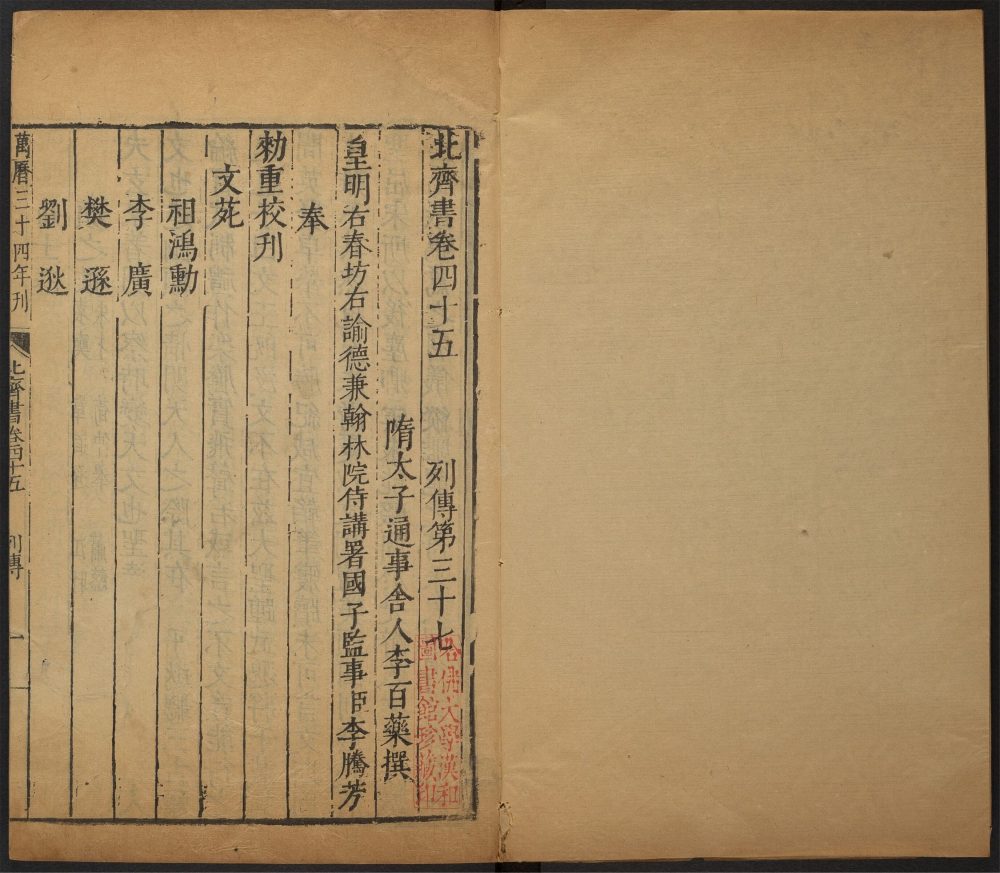 北齊書卷四十五　列傳第三十七
隋太子通事舍人李百藥撰
皇明右春坊右諭德兼翰林院侍講署國子監事臣李騰芳
奉
勑重校刊
文苑
祖鴻勳
李廣
樊遜
劉逖
萬曆三十四年刊
北齊書卷四十五　列傳　一
哈佛大學漢和
圖書館珍藏印